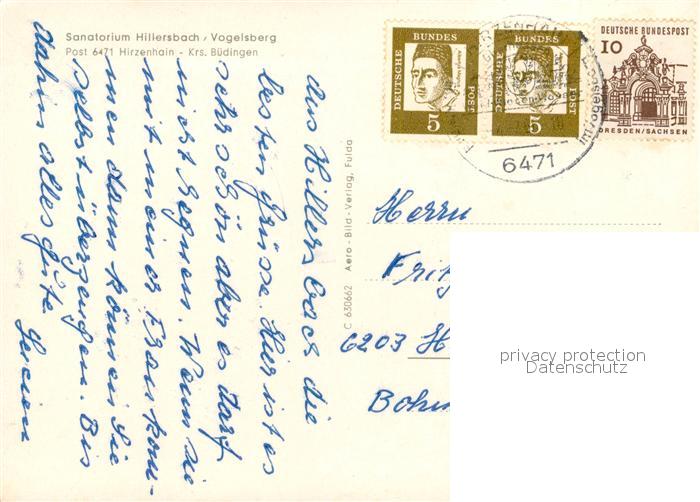 Sanatorium Hillersbach / Vogelsberg
Post 6471 Hirzenhain - Krs. Büdingen
aus Hillersbach die
besten Grüsse. Hier ist es
sehr schön aber es darf
nicht regnen. Wenn Sie
mit meiner Frau kom-
men dann können Sie
selbst überzeugen. Bis
dahin alles Gute
C 630662 Aero-Bild-Verlag, Fulda
DEUTSCHE BUNDES POST
5
DEUTSCHE BUNDES POST
5
DEUTSCHE BUNDESPOST
10
DRESDEN/SACHSEN
6471
Herrn
Fritz
6203 H
Bohn
privacy protection
Datenschutz